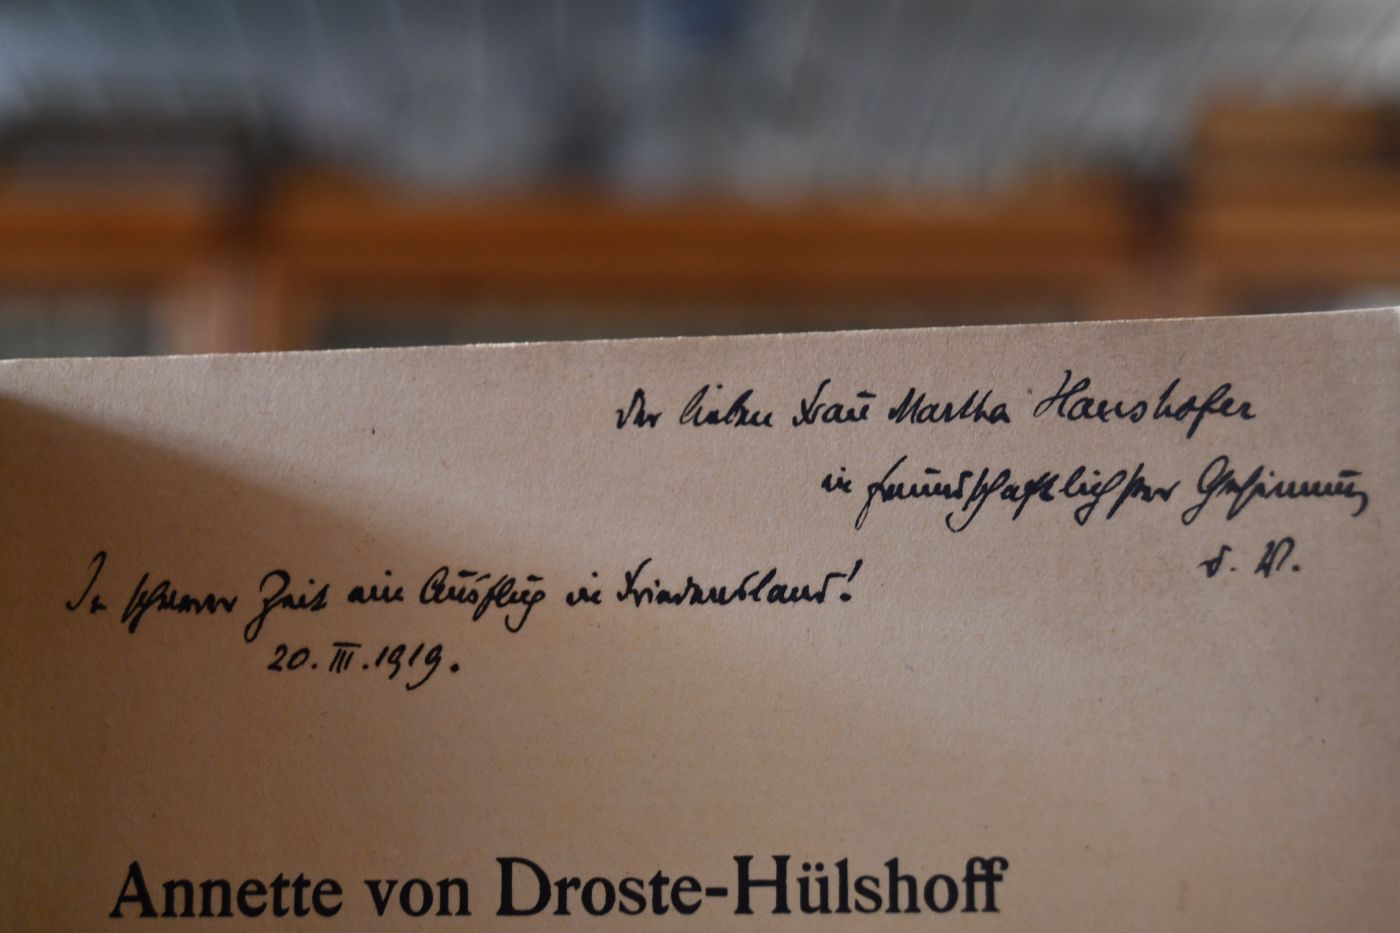 Der lieben Frau Martha Haushofer
in freundschaftlichster Gesinnung
d. V.
In schwerer Zeit ein Ausflug in Friedensland!
20. III. 1919.
Annette von Droste-Hülshoff